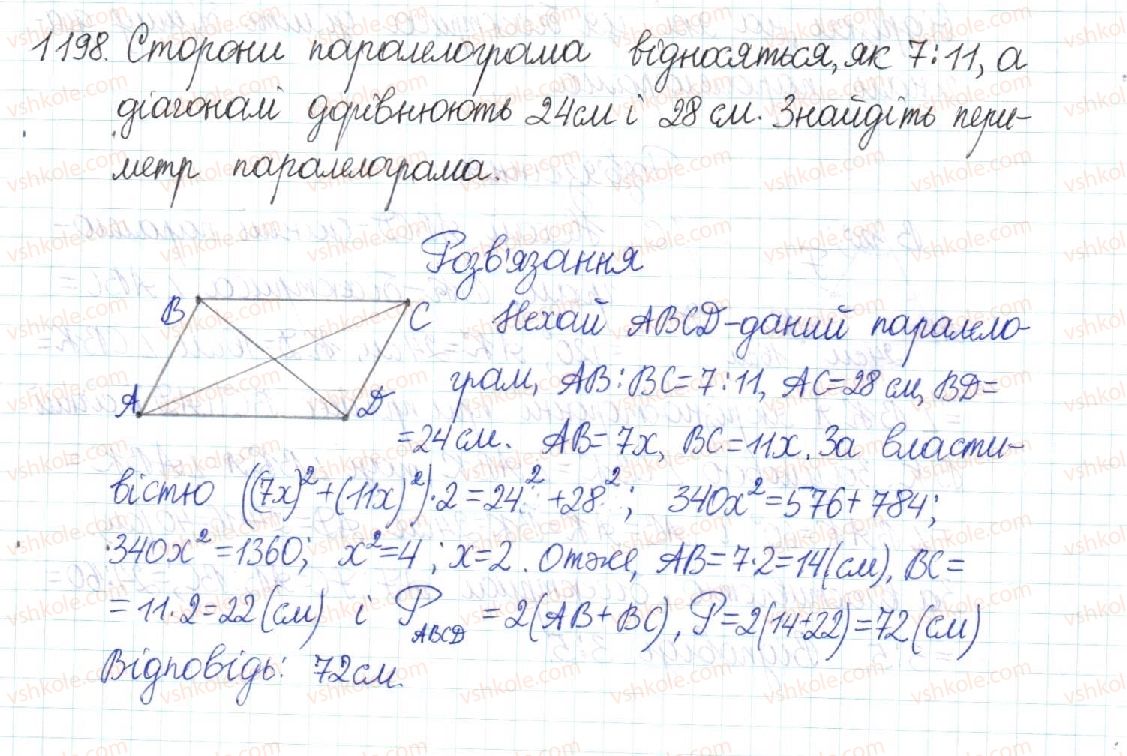 1198. Сторони паралелограма відносяться, як 7:11, а
діагоналі дорівнюють 24см і 28 см. Знайдіть пери-
метр паралелограма.
Розв'язання
B C
A D
Нехай ABCD-даний паралело-
грам, AB:BC=7:11, AC=28 см, BD=
=24см. AB=7x, BC=11x. За власти-
вістю ((7x)²+(11x)²)·2=24²+28²; 340x²=576+784;
340x²=1360; x²=4; x=2. Отже, AB=7·2=14(см), BC=
=11·2=22(см) і P_ABCD=2(AB+BC), P=2(14+22)=72(см)
Відповідь: 72см.
vshkole.com